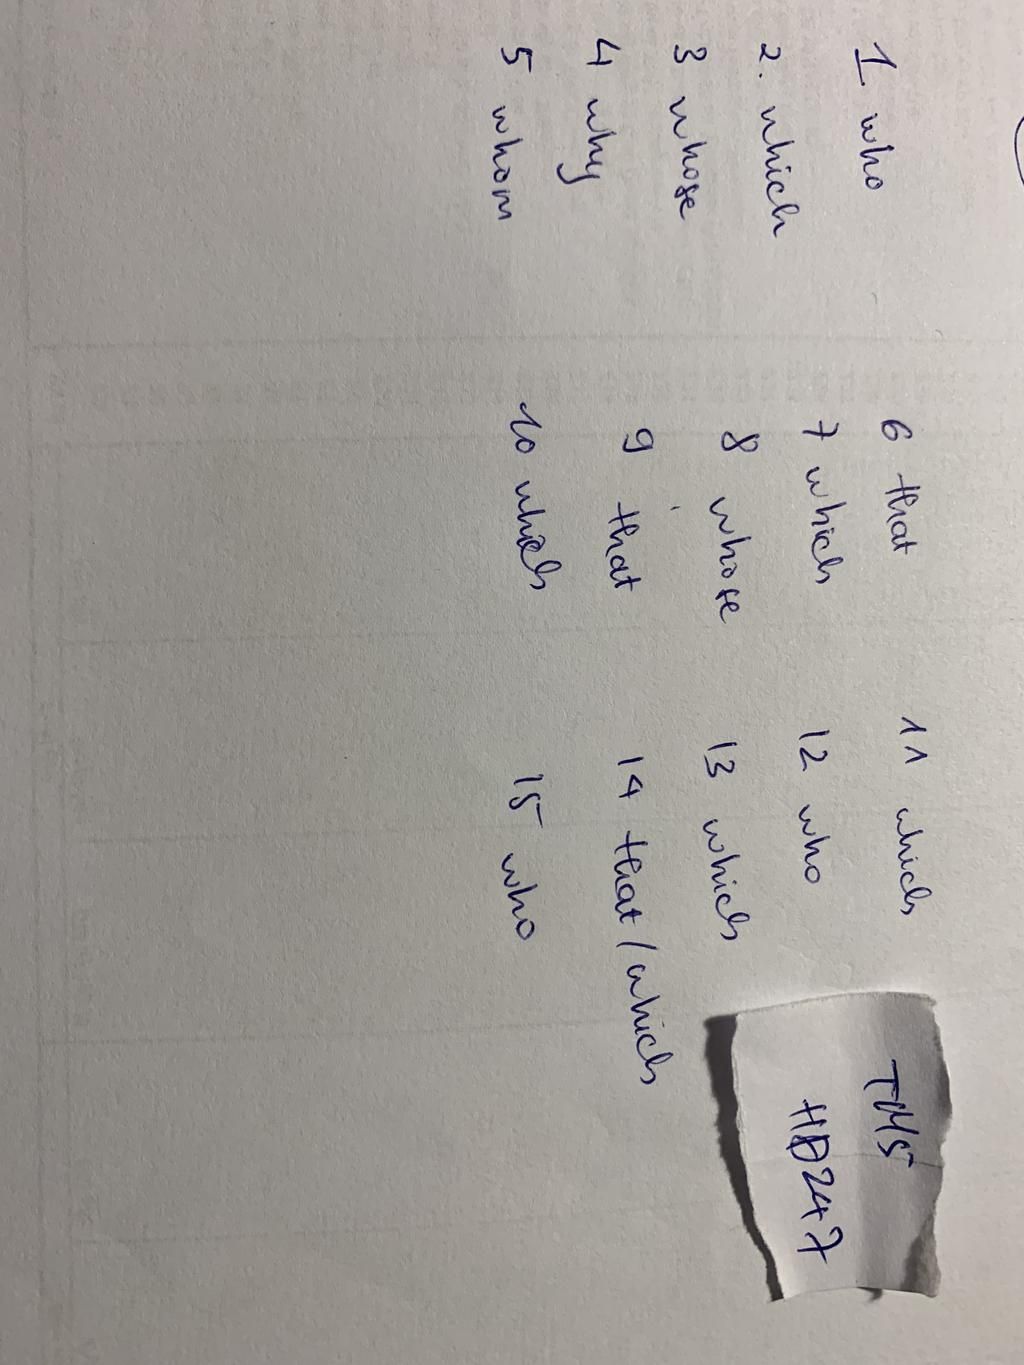 1 who
2. which
3 whose
4 why
5 whom
6 that
7 which
8 whose
9 that
10 which
11 which
12 who
13 which
14 that / which
15 who
TMS
HD247